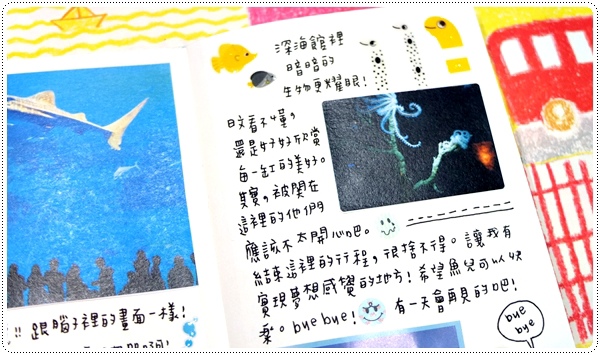 !! 跟腦子裡的畫面一樣!
深海館裡
暗暗的
生物更耀眼!
日文看不懂,
還是好好欣賞
每一缸的美好。
其實,被關在
這裡的他們
應該不太開心吧。
結束這裡的行程,很捨不得。讓我有
實現夢想感覺的地方!希望魚兒可以快
樂。bye bye! 有一天會再見的吧!
bye
bye